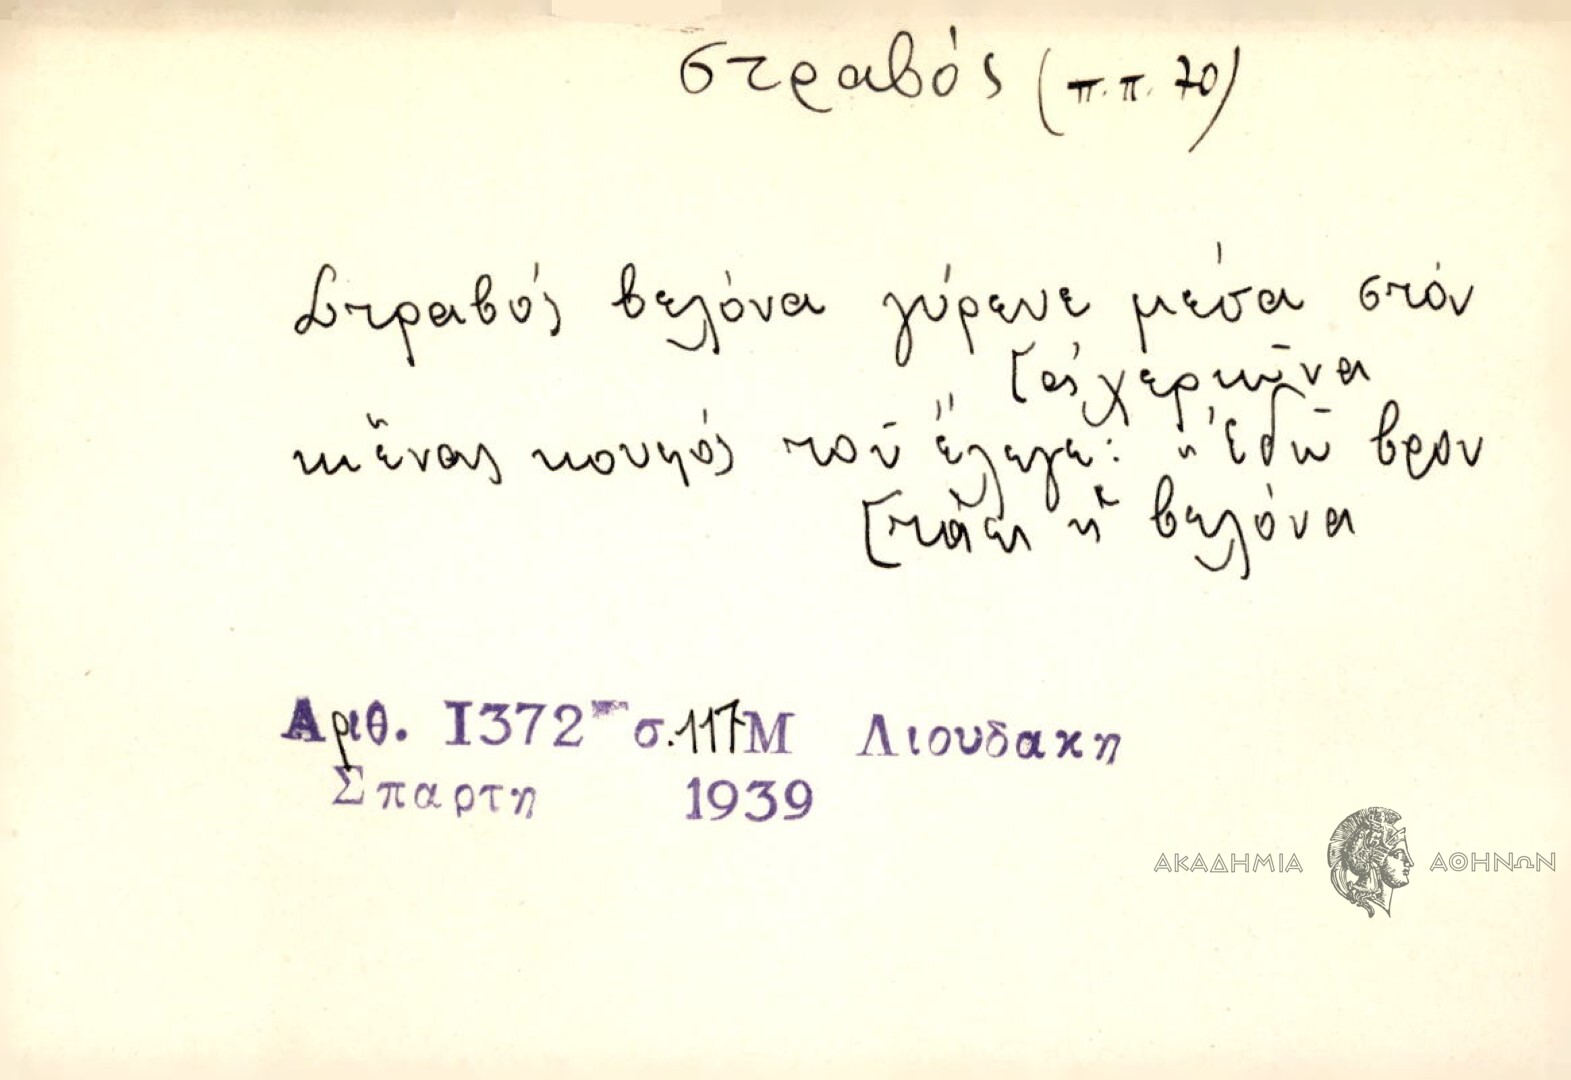 στραβός (π.π. 70)
Στραβός βελόνα γύρευε μέσα στόν
[ἀχερῶνα
κι ἕνας κουφός τοῦ ἔλεγε: " Ἐδῶ βρον
[τάει ἡ βελόνα
Αριθ. 1372 σ. 117 Μ Λιουδακη
Σπαρτη 1939
ΑΚΑΔΗΜΙΑ ΑΘΗΝΩΝ